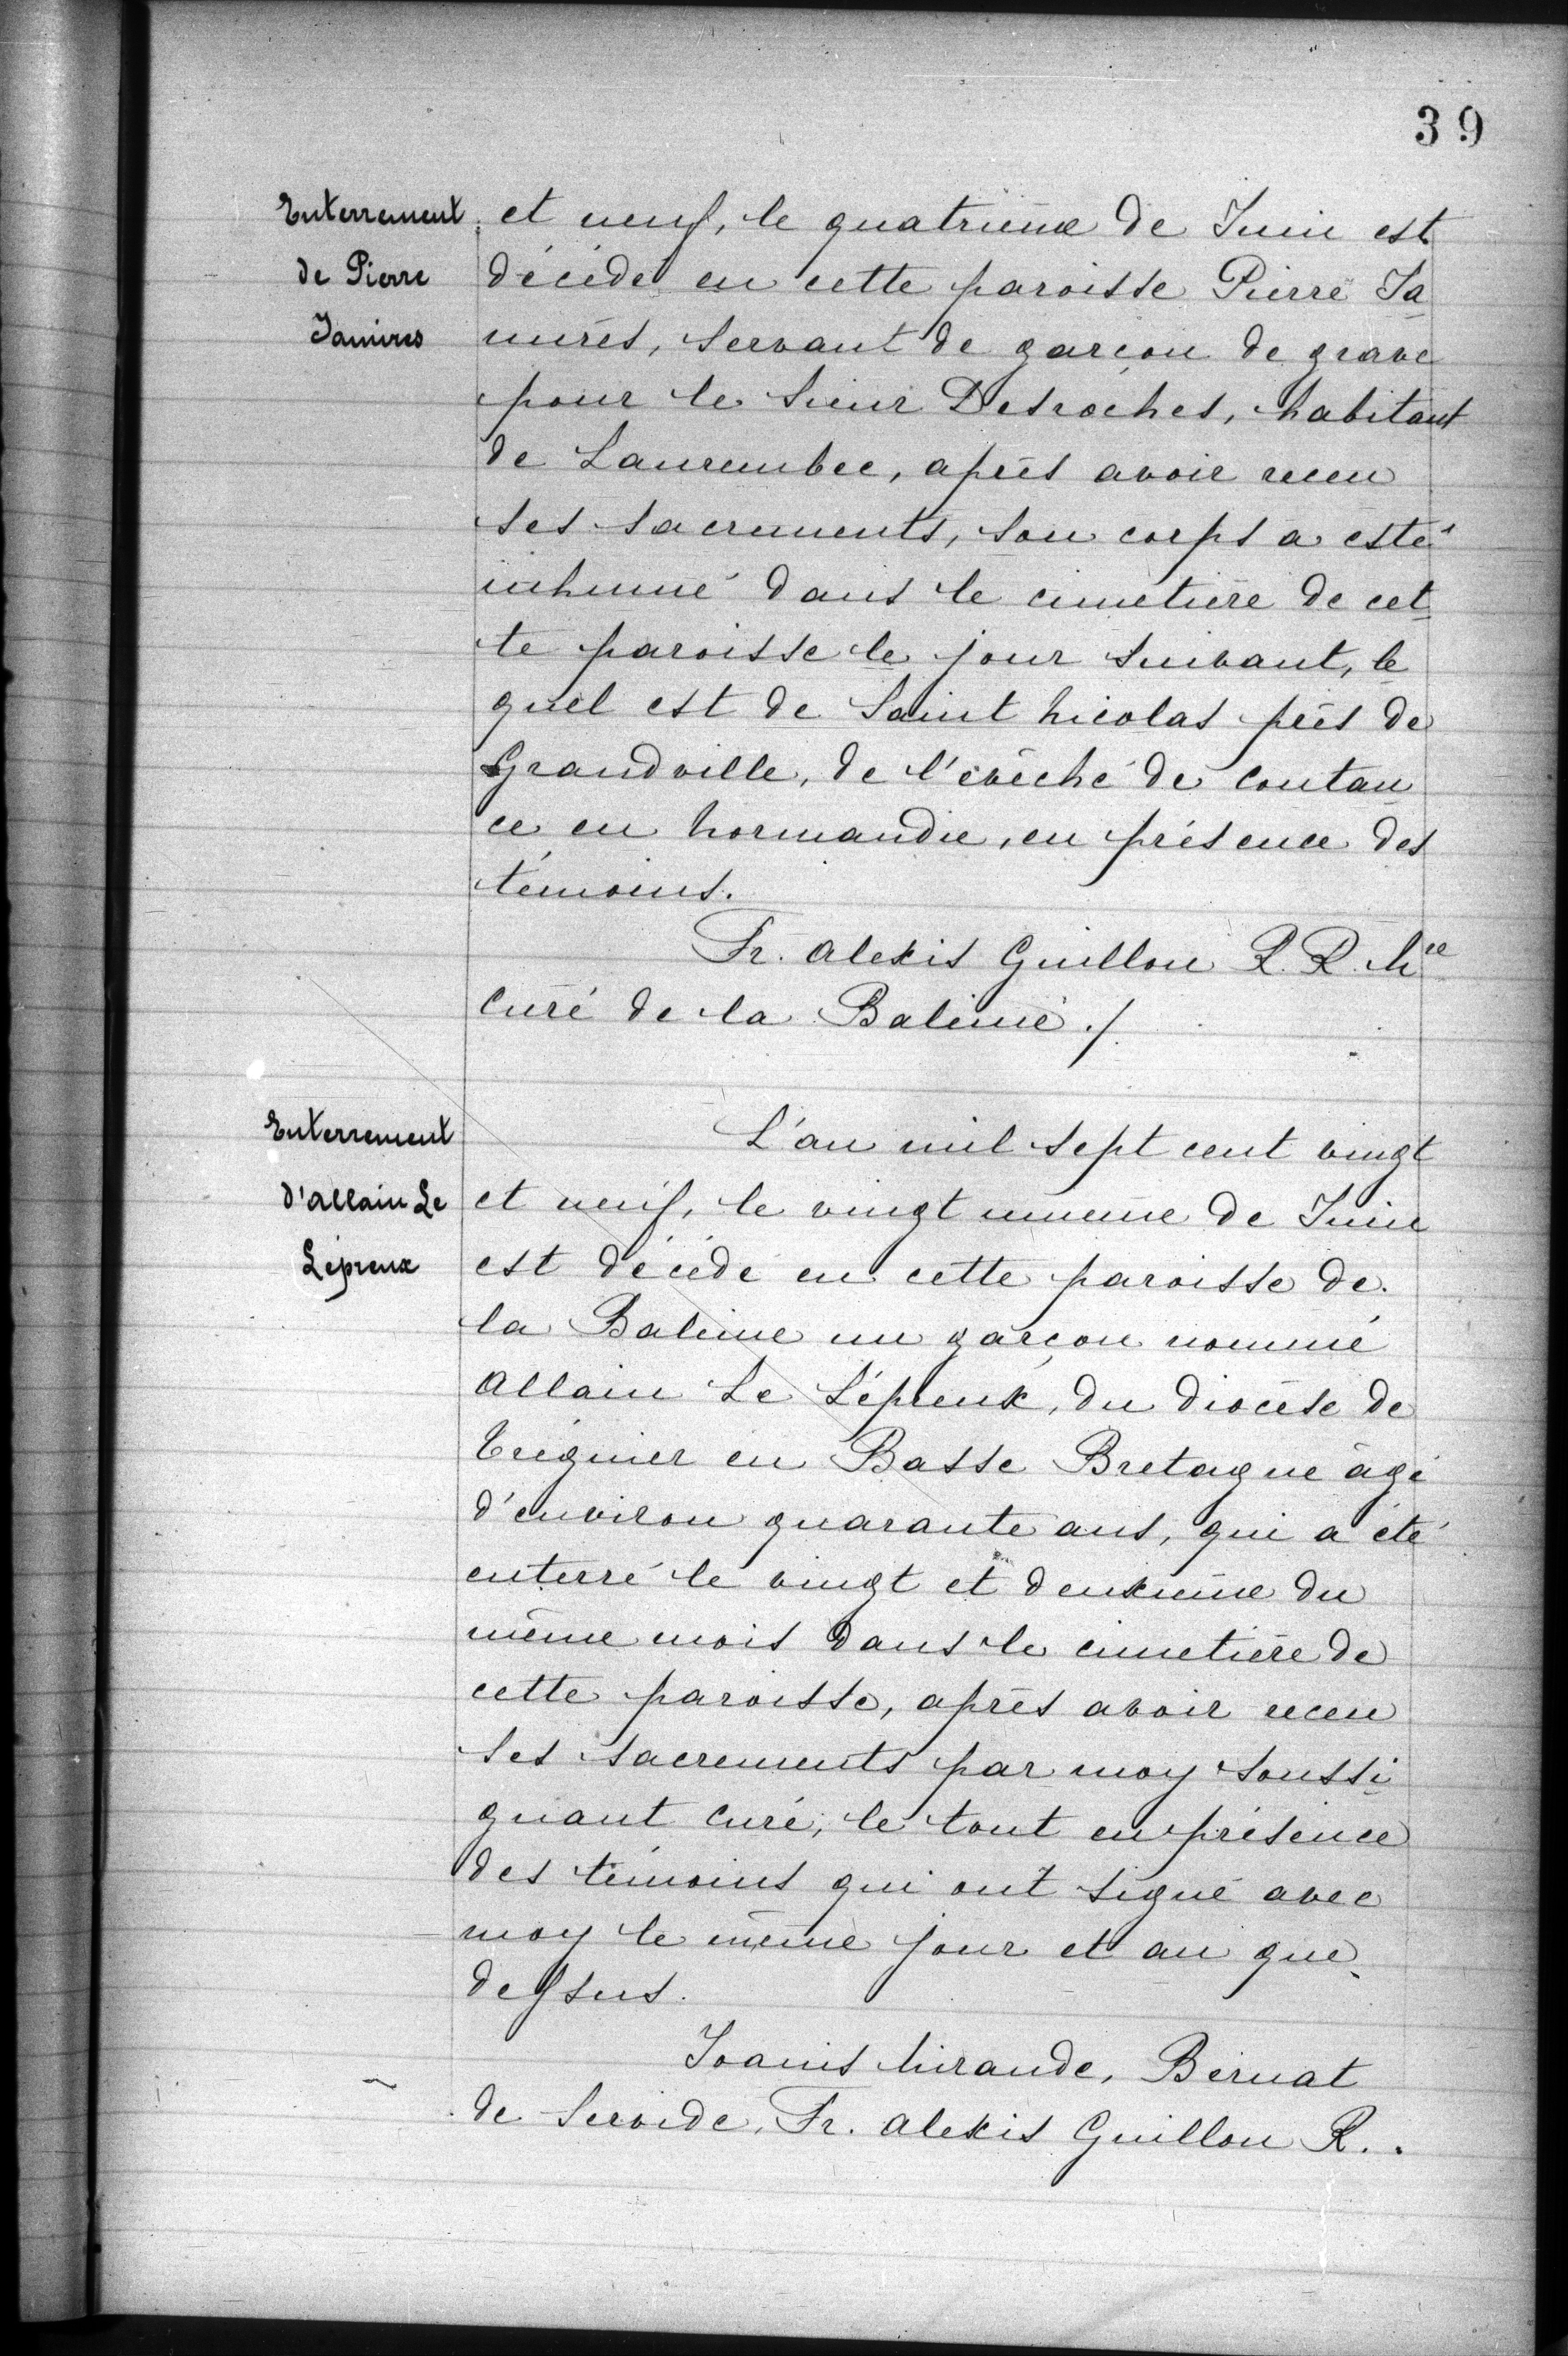 39
Enterrement
de Pierre
Jamires
et neuf, le quatrième de Juin est
décédé en cette paroisse Pierre Ja
mires, servant de garçon de grave
pour le sieur Desroches, habitant
de Laurembec, après avoir receu
ses sacrements, son corps a esté
inhumé dans le cimetière de cet
te paroisse le jour suivant, le
quel est de Saint Nicolas près de
Grandville, de l'évêché de Coutan
ce en Normandie, en présence des
témoins.
Fr. Alexis Guillou R. R. Mre
Curé de la Baleine ./.
Enterrement
d'Allain Le
Lépreux
L'an mil sept cent vingt
et neuf, le vingt unieme de Juin
est décédé en cette paroisse de
la Baleine un garçon nommé
Allain Le Lépreux, du diocèse de
Tréguier en Basse Bretagne âgé
d'environ quarante ans, qui a été
enterré le vingt et deuxième du
même mois dans le cimetière de
cette paroisse, après avoir receu
ses sacrements par moy soussi
gnant Curé, le tout en présence
des témoins qui ont signé avec
moy le même jour et an que
dessus.
Joanis Mirande, Bernat
de Servide, Fr. Alexis Guillou R. .